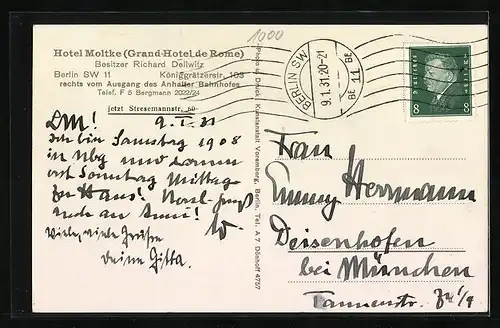 1000
Hotel Moltke (Grand-Hotel de Rome)
Besitzer Richard Dellwitz
Berlin SW 11 Königgrätzerstr. 103
rechts vom Ausgang des Anhalter Bahnhofes
Telef. F 5 Bergmann 2022/24
jetzt Stresemannstr.
9. I. 31
bin Samstag 1908
in Nbg und komme
erst Samstag Mittag
zu Haus!
Viele, viele Grüße
deine Gitta.
Kunstanstalt Voremberg, Berlin, Tel. A 7 Dönhoff 4757
BERLIN SW
9.1.31.20-21
BE 11 BE
8 8
Frau
Emmy Herrmann
Deisenhofen
bei München
Tannenstr.